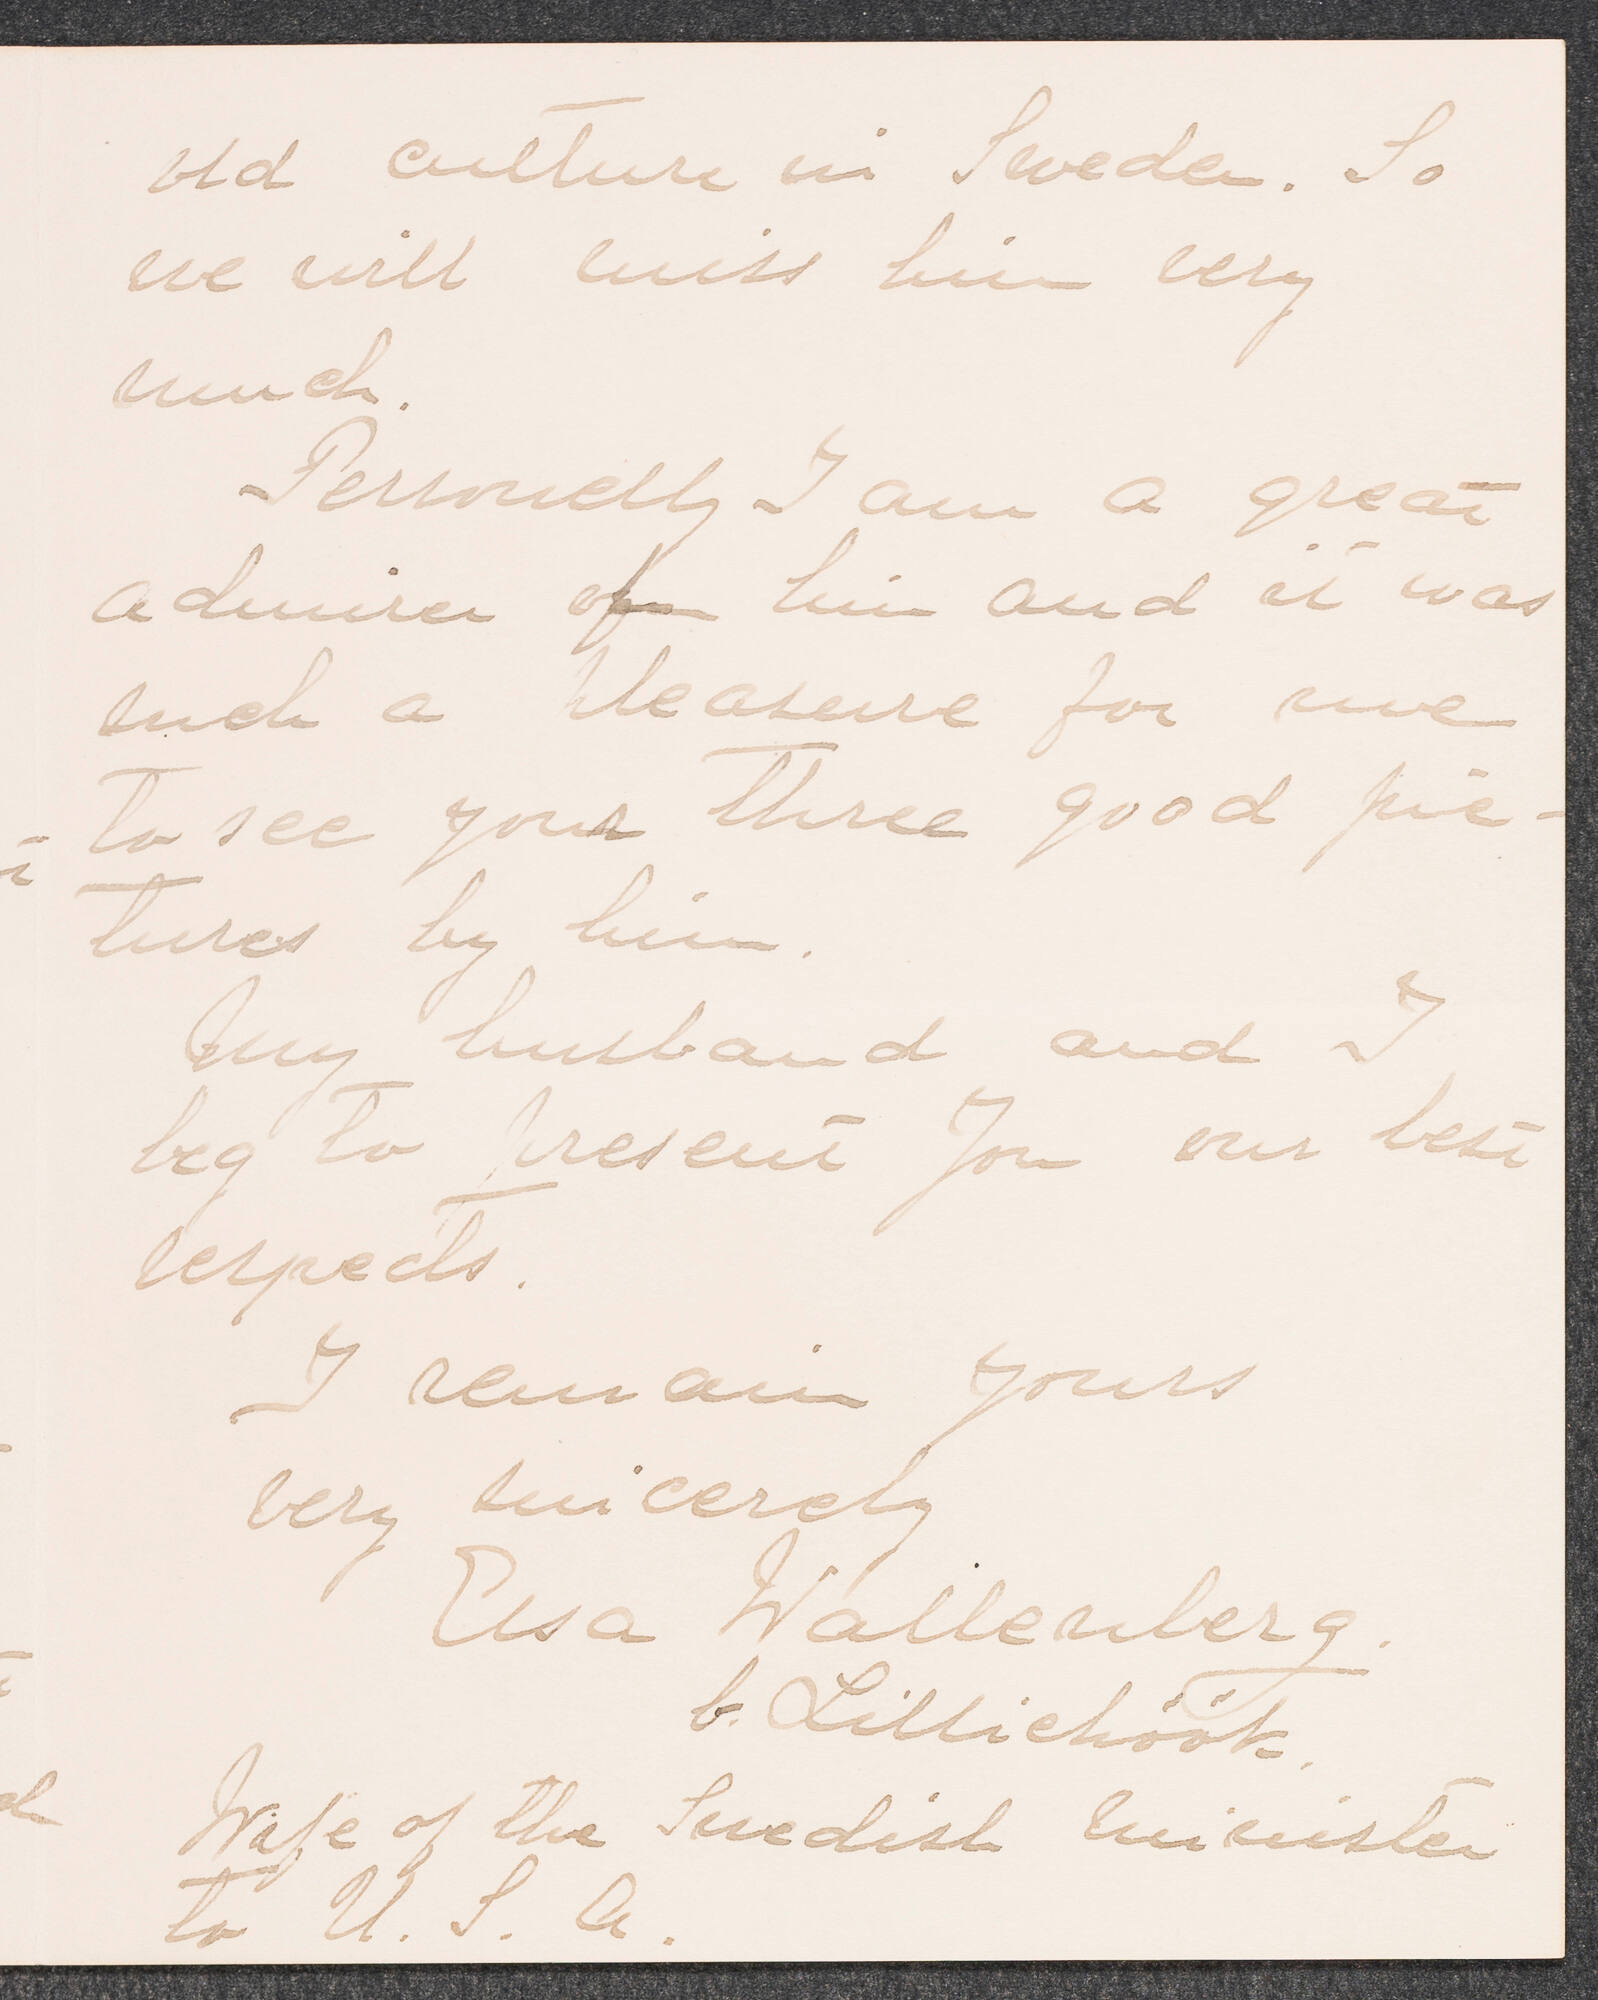 old culture in Sweden. So
we will miss him very
much.
Personelly I am a great
admirer of him and it was
such a pleasure for me
to see your three good pic-
tures by him.
My husband and I
beg to present You our best
respects.
I remain yours
very sincerely
Elsa Wallenberg.
b. Lilliehöök.
Wife of the Swedish minister
to U. S. A.